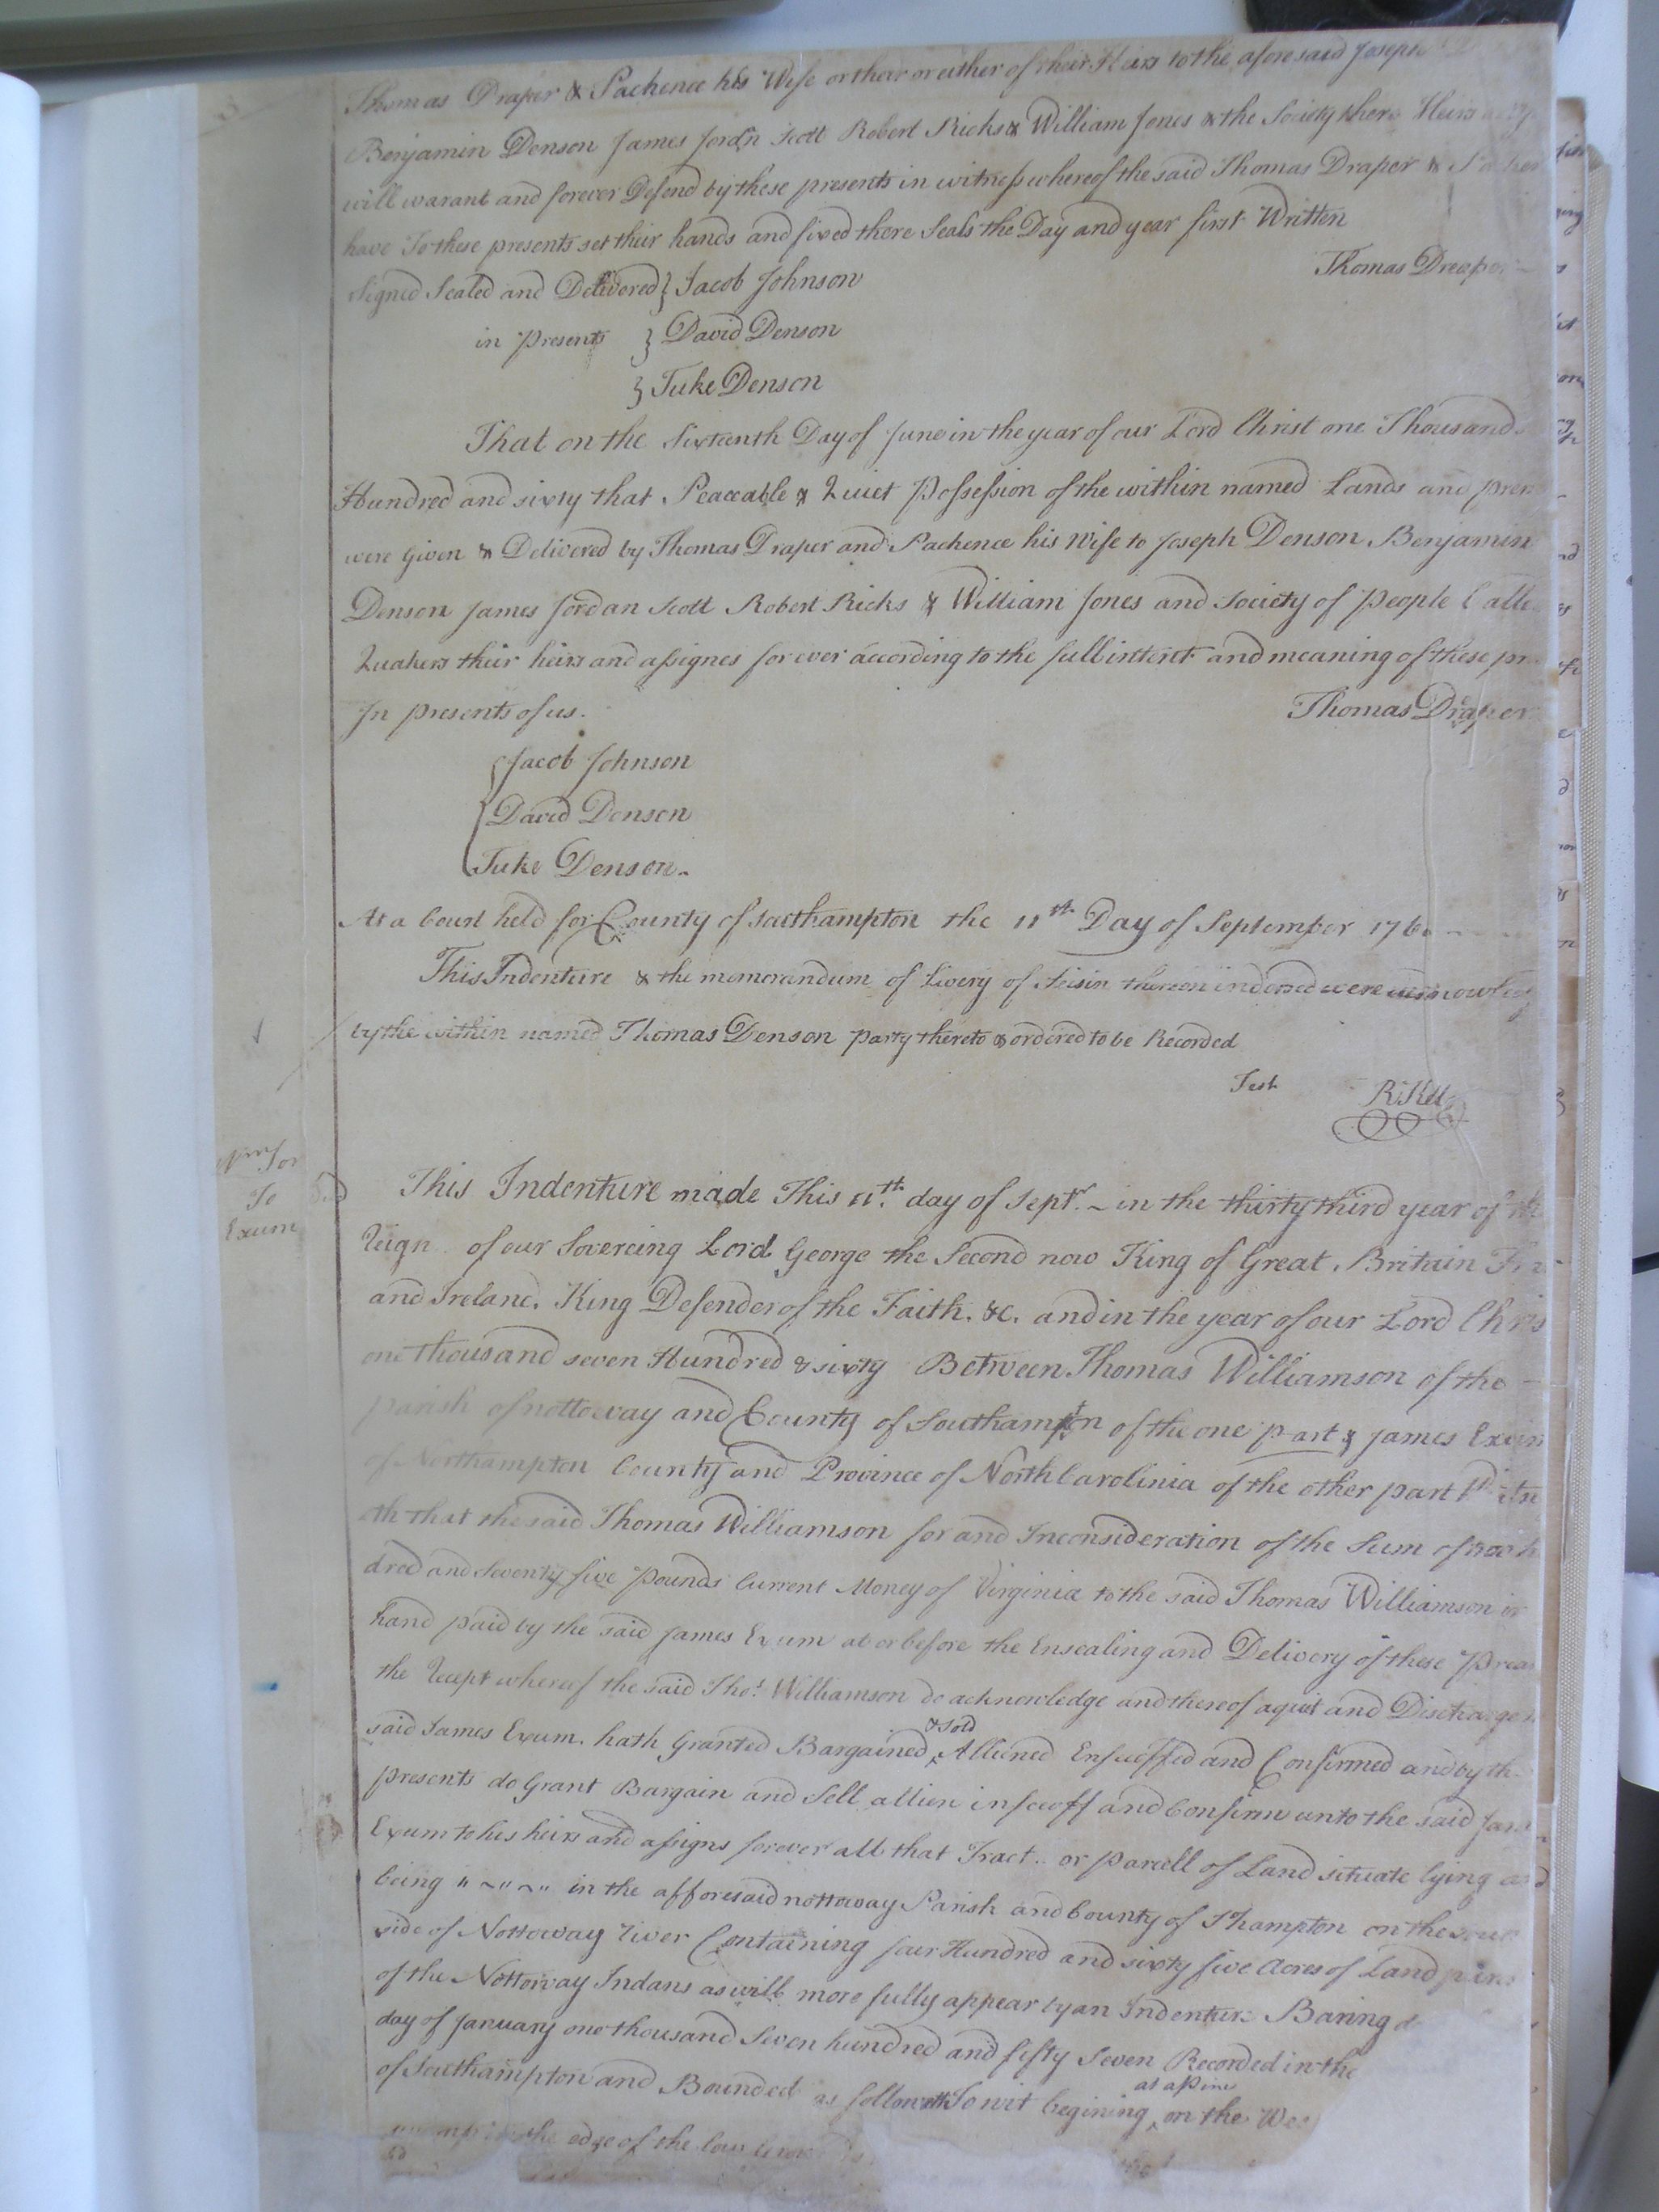 Thomas Draper & Pachence his Wife or their or either of their Heirs to the afore said Joseph
Benjamin Denson James Jord'n Scott Robert Ricks & William Jones & the Society there Heirs
will warant and forever Defend by these presents in witness whereof the said Thomas Draper &
have To these presents set their hands and fixed there Seals the Day and year first Written
Signed Sealed and Delivered } Jacob Johnson Thomas Dreaper
in Presents } David Denson
} Tuke Denson
That on the Sixteenth Day of June in the year of our Lord Christ one Thousand
Hundred and sixty that Peaceable & Quiet Possession of the within named Lands and prem
were given & Delivered by Thomas Draper and Pachence his Wife to Joseph Denson Benjamin
Denson James Jordan Scott Robert Ricks & William Jones and Society of People Calle
Quakers their heirs and assignes for ever according to the full intent and meaning of these pr
In presents of us. Thomas Draper
Jacob Johnson
David Denson
Tuke Denson
At a Court held for County of Southampton the 11th Day of September 1760
This Indenture & the memorandum of Livery of Seisin thereon indorsed were acknowledg
by the within named Thomas Denson party thereto & ordered to be Recorded
Test R. Kell
To
Exum
This Indenture made This 11th day of Sept. in the thirty third year of the
Reign of our Sovereing Lord George the Second now King of Great Britain Fra
and Ireland, King Defender of the Faith. &c. and in the year of our Lord Chris
one thousand seven Hundred & sixty Between Thomas Williamson of the
parish of nottoway and County of Southampton of the one part & James Exum
of Northampton County and Province of North Carolinia of the other part Witne
th that the said Thomas Williamson for and Inconsideration of the Sum of
dred and Seventy five Pounds Current Money of Virginia to the said Thomas Williamson in
hand paid by the said James Exum at or before the Ensealing and Delivery of these Presen
the Recept whereof the said Thos. Williamson do acknowledge and thereof aquit and Discharge
said James Exum. hath Granted Bargained & Sold Alliened Enfeoffed and Confirmed and by th
presents do Grant Bargain and Sell allien infeoff and Confirm unto the said Jam
Exum to his heirs and assigns forever all that Tract or parcell of Land situate lying and
being in the afforesaid nottoway Parish and County of S'hampton on the
side of Nottoway River Containing four Hundred and sixty five Acres of Land
of the Nottoway Indans as will more fully appear by an Indenture Baring d
day of January one thousand Seven hundred and fifty Seven Recorded in the
of Southampton and Bounded as followeth To wit begining at a Pine on the Wes
the edge of the low